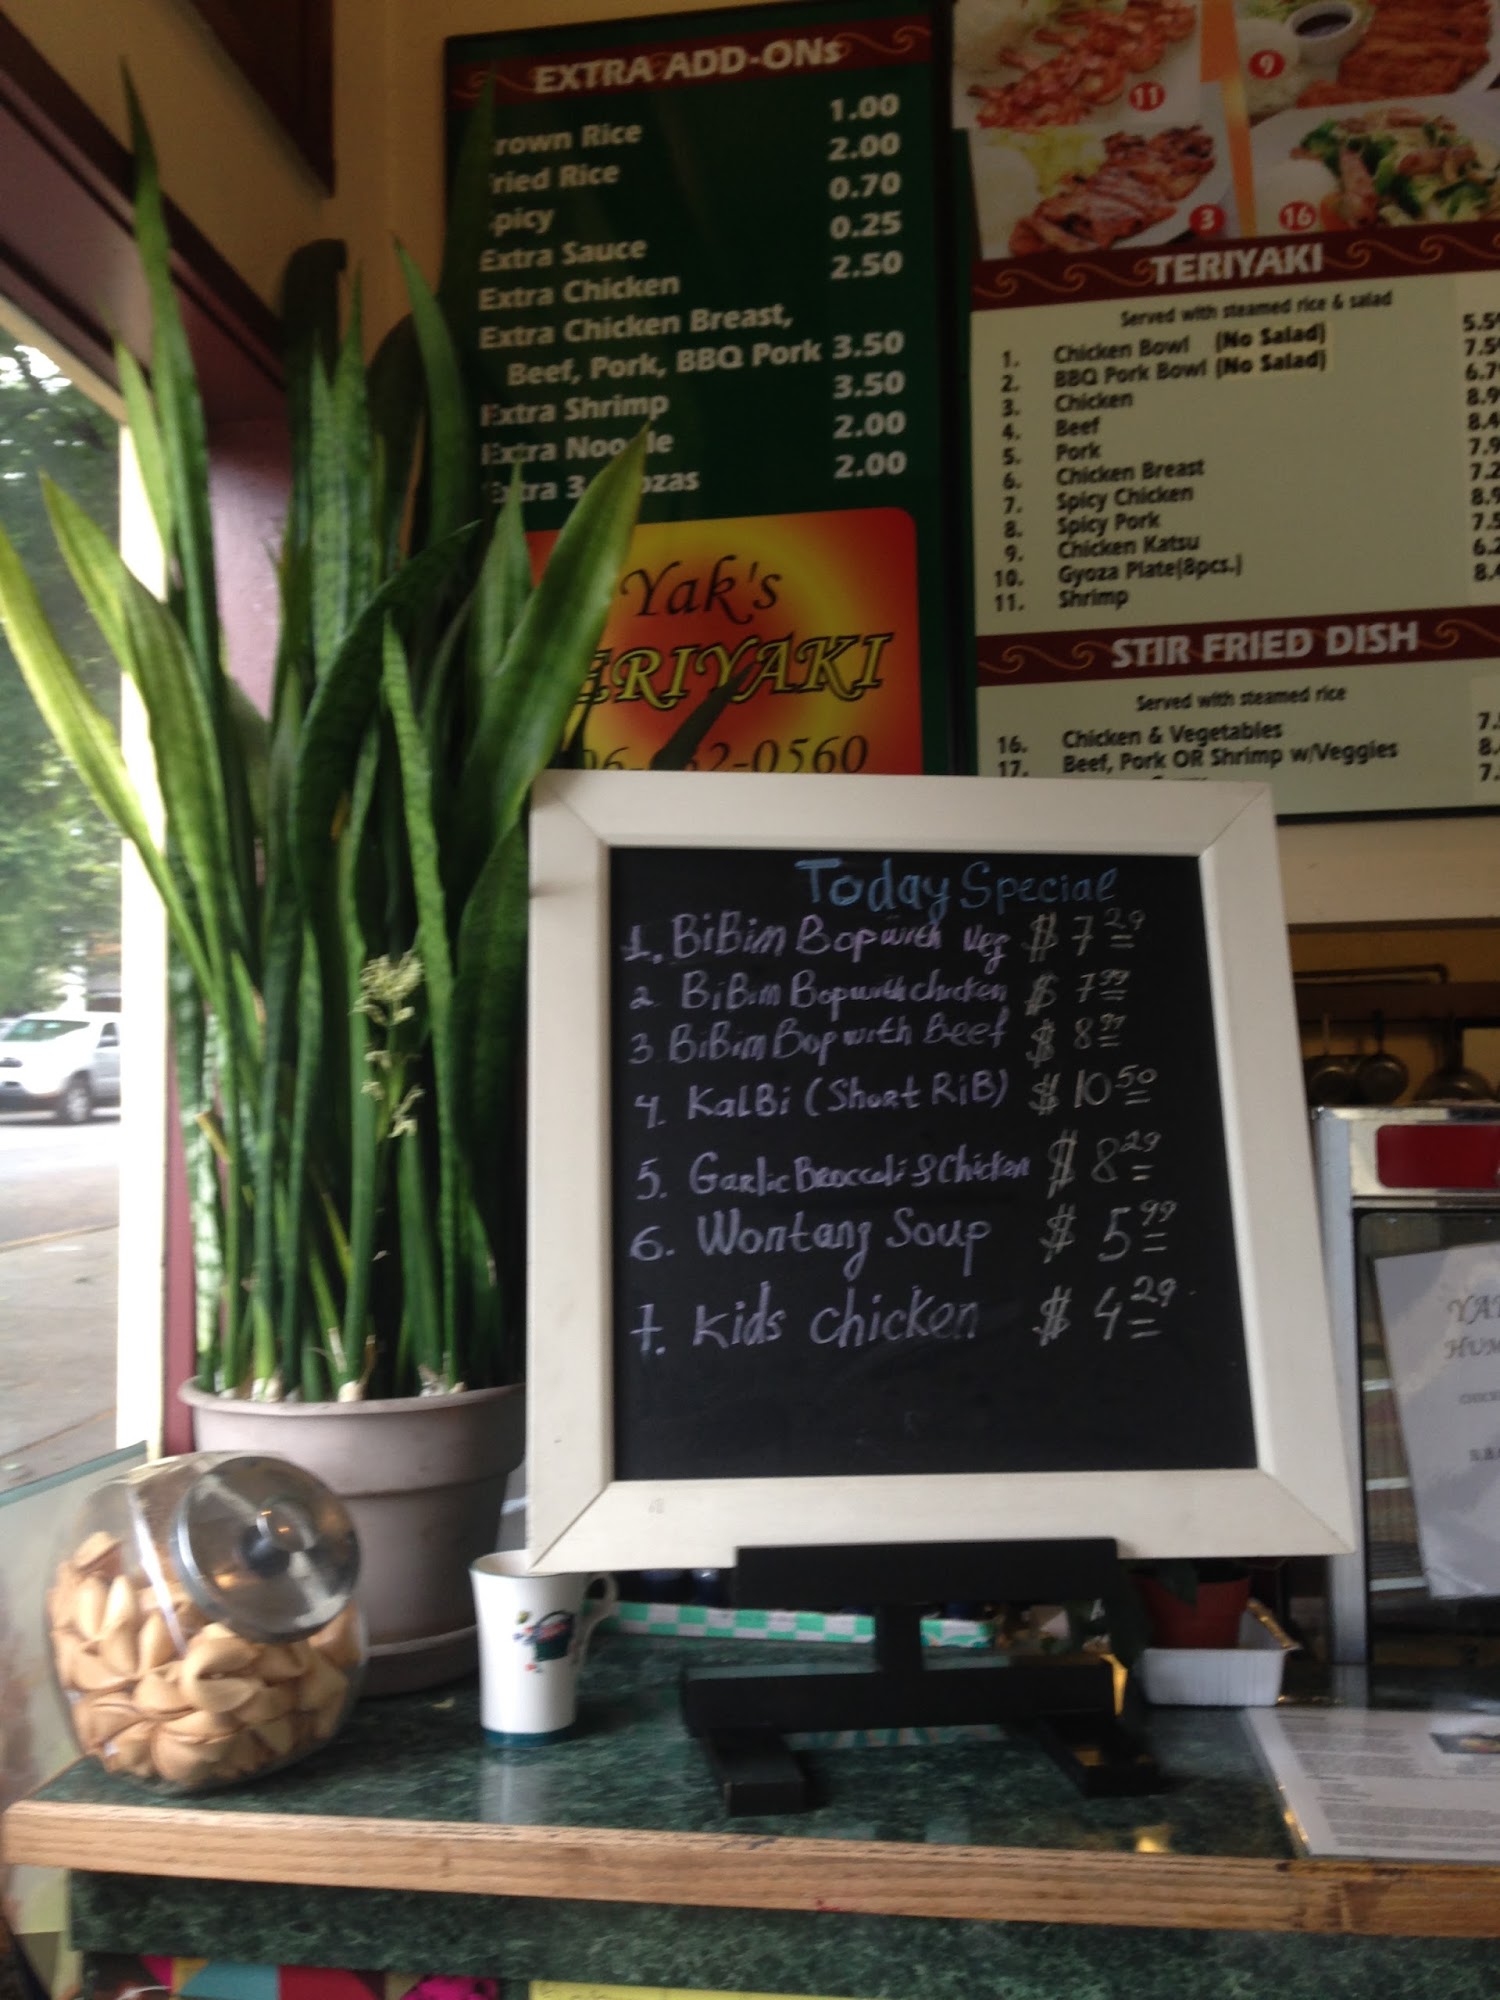 EXTRA ADD-ONs
rown Rice 1.00
ried Rice 2.00
picy 0.70
Extra Sauce 0.25
Extra Chicken 2.50
Extra Chicken Breast,
Beef, Pork, BBQ Pork 3.50
Extra Shrimp 3.50
Extra Noo le 2.00
Extra 3 ozas 2.00
Yak's
ERIYAKI
06- 2-0560
11
9
3
16
TERIYAKI
Served with steamed rice & salad
1. Chicken Bowl (No Salad) 5.5
2. BBQ Pork Bowl (No Salad) 7.5
3. Chicken 6.7
4. Beef 8.9
5. Pork 8.4
6. Chicken Breast 7.9
7. Spicy Chicken 7.2
8. Spicy Pork 8.9
9. Chicken Katsu 7.5
10. Gyoza Plate(8pcs.) 6.2
11. Shrimp 8.4
STIR FRIED DISH
Served with steamed rice
16. Chicken & Vegetables 7.
17. Beef, Pork OR Shrimp w/Veggies 8.
7.
Today Special
1. BiBim Bop with Veg $ 7 29
2. BiBim Bop with chicken $ 7 99
3. BiBim Bop with Beef $ 8 99
4. KalBi (Short RiB) $ 10 50
5. Garlic Broccoli & Chicken $ 8 29
6. Wontang Soup $ 5 99
7. Kids chicken $ 4 29
YA
HUM